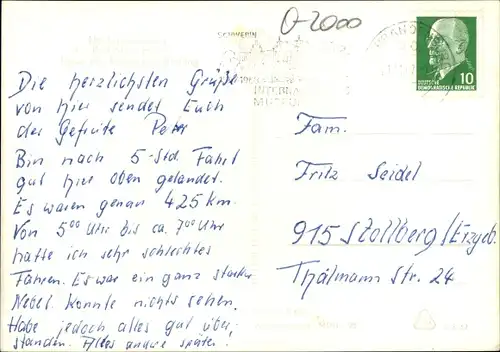 O-2000
SCHWERIN
INTERNA
DEUTSCHE
DEMOKRATISCHE REPUBLIK
10
Die herzlichsten Grüße
von hier sendet Euch
der Gefreite Peter
Bin nach 5-Std. Fahrt
gut hier oben gelandet.
Es waren genau 425 km.
Von 5⁰⁰ Uhr bis ca. 7⁰⁰ Uhr
hatte ich sehr schlechtes
Fahren. Es war ein ganz starker
Nebel. Konnte nichts sehen.
Habe jedoch alles gut über-
standen. Alles andre später.
Fam.
Fritz Seidel
915 Stollberg/Erzgeb.
Thälmann Str. 24